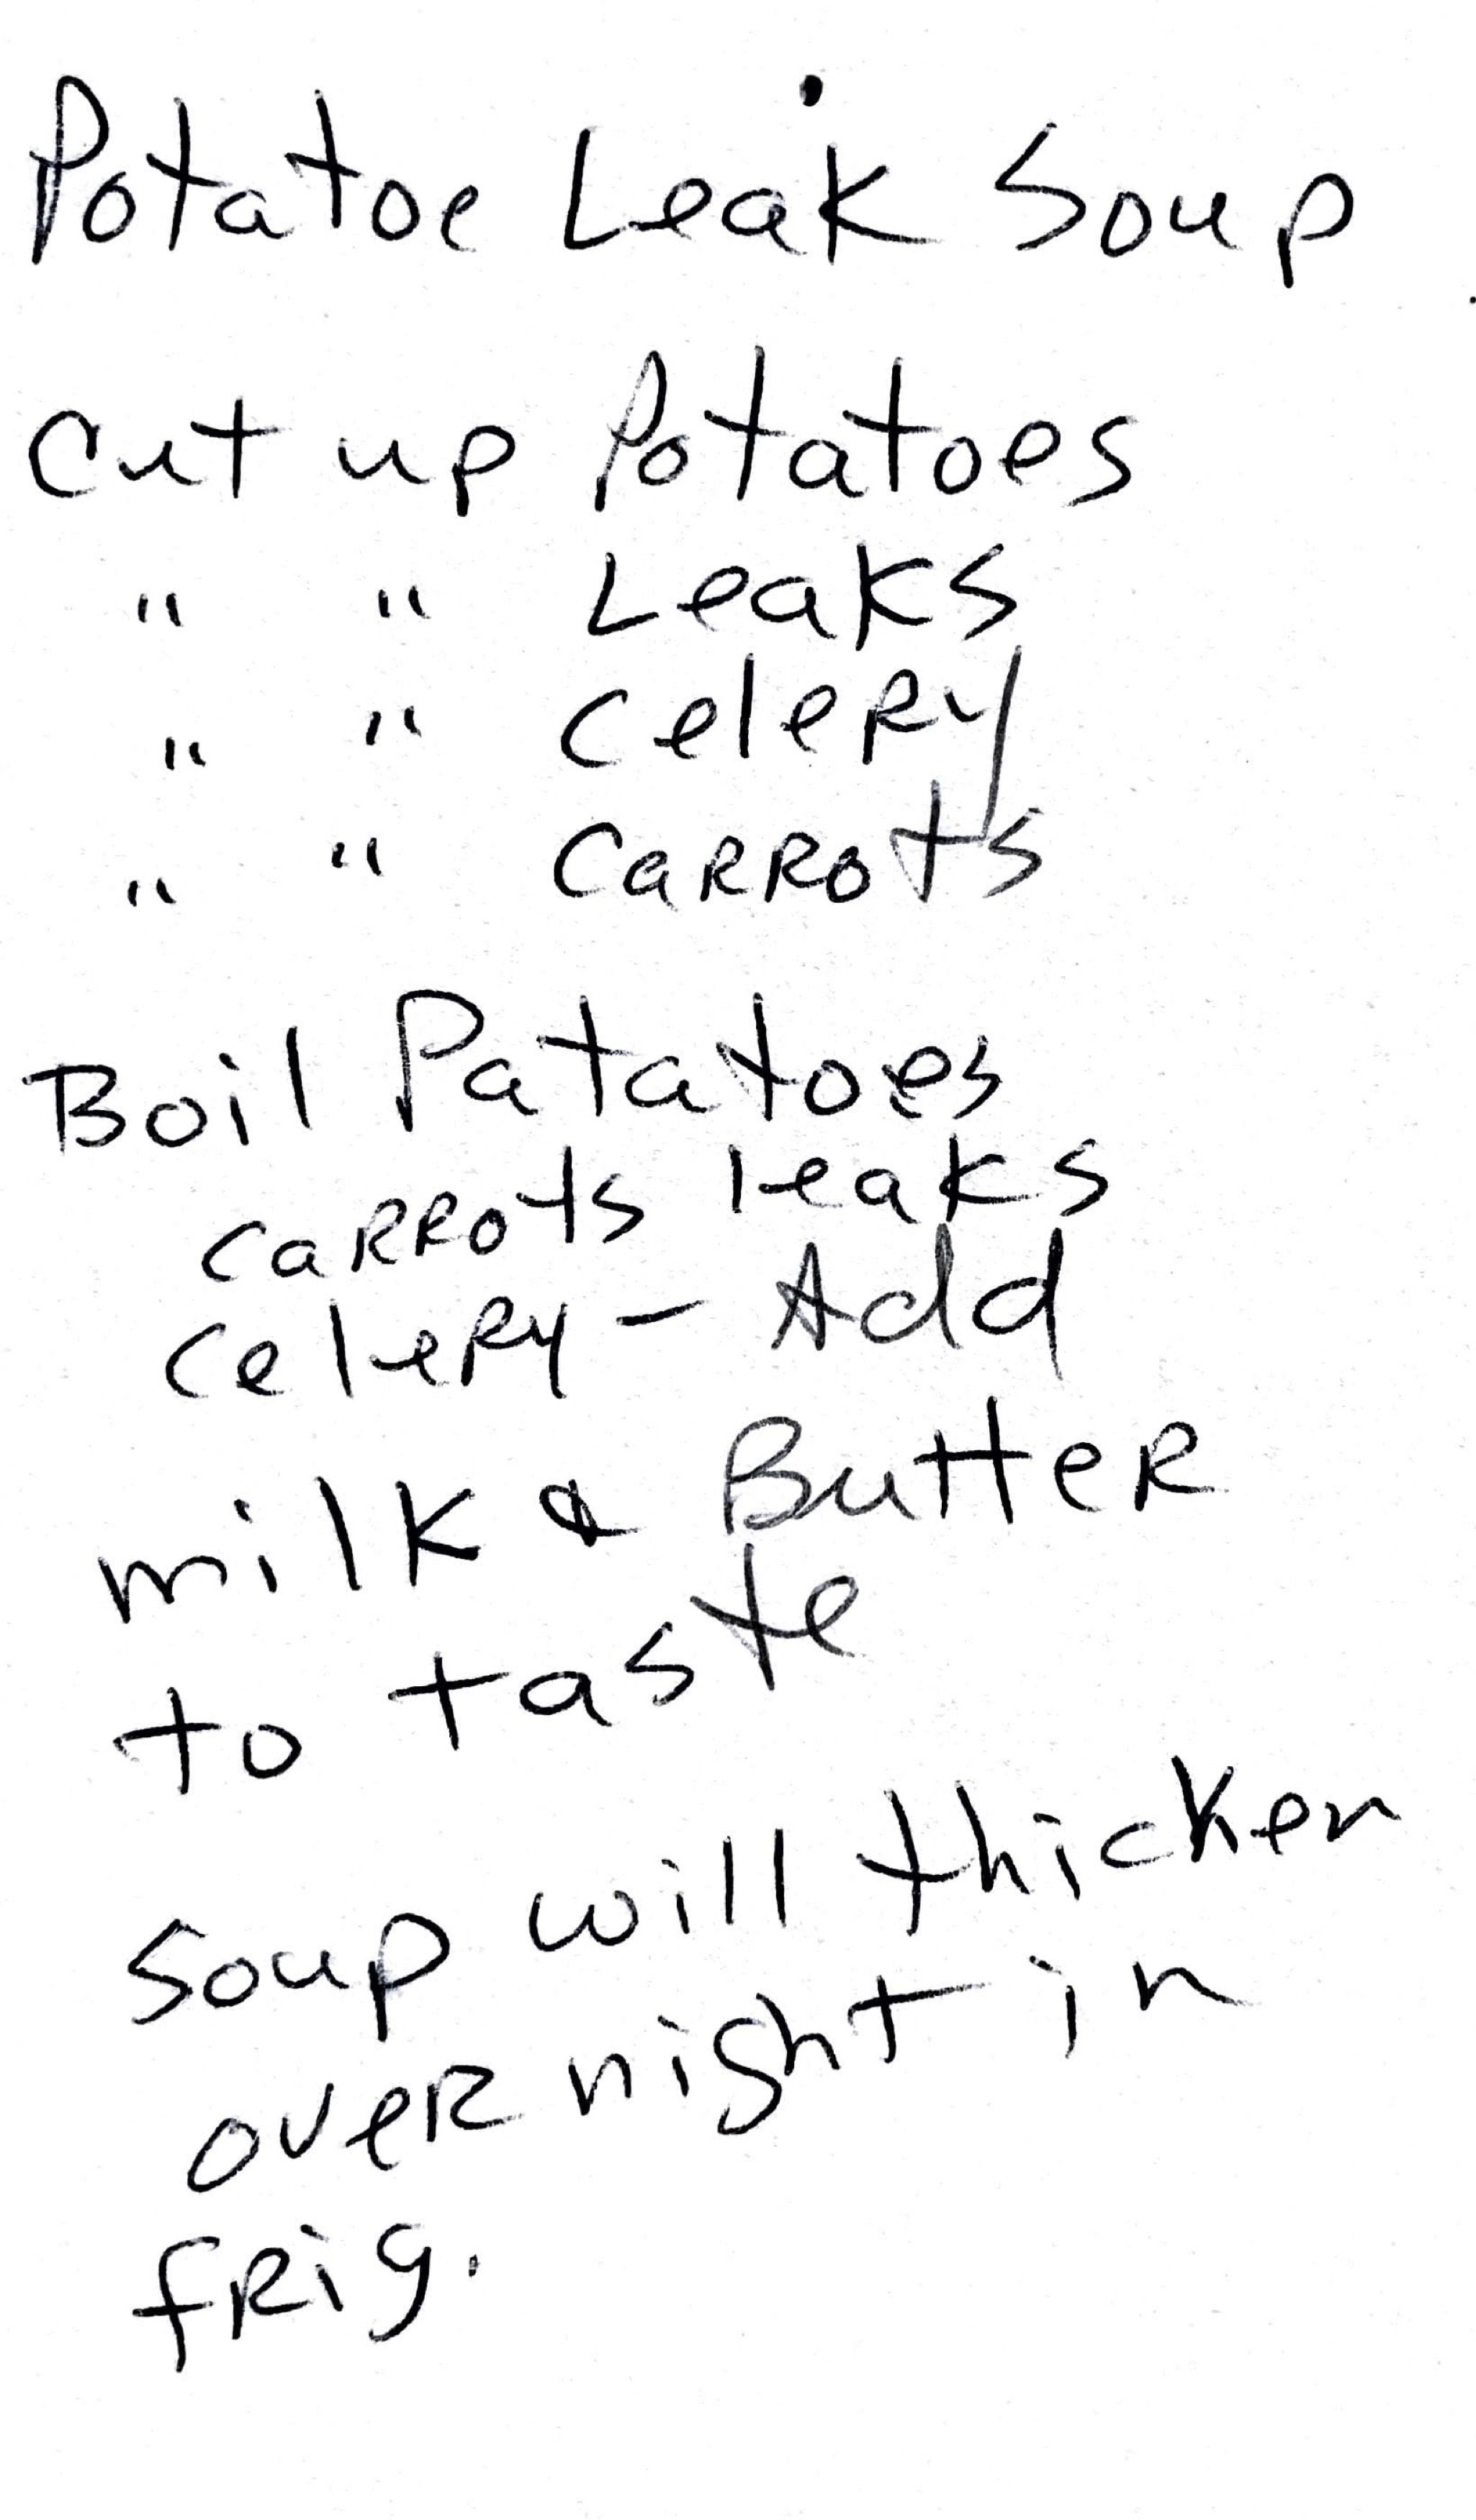 Potatoe Leak Soup
Cut up Potatoes
" " Leaks
" " Celery
" " Carrots
Boil Patatoes
carrots leaks
celery - Add
milk & Butter
to taste
soup will thicken
over night in
frig.